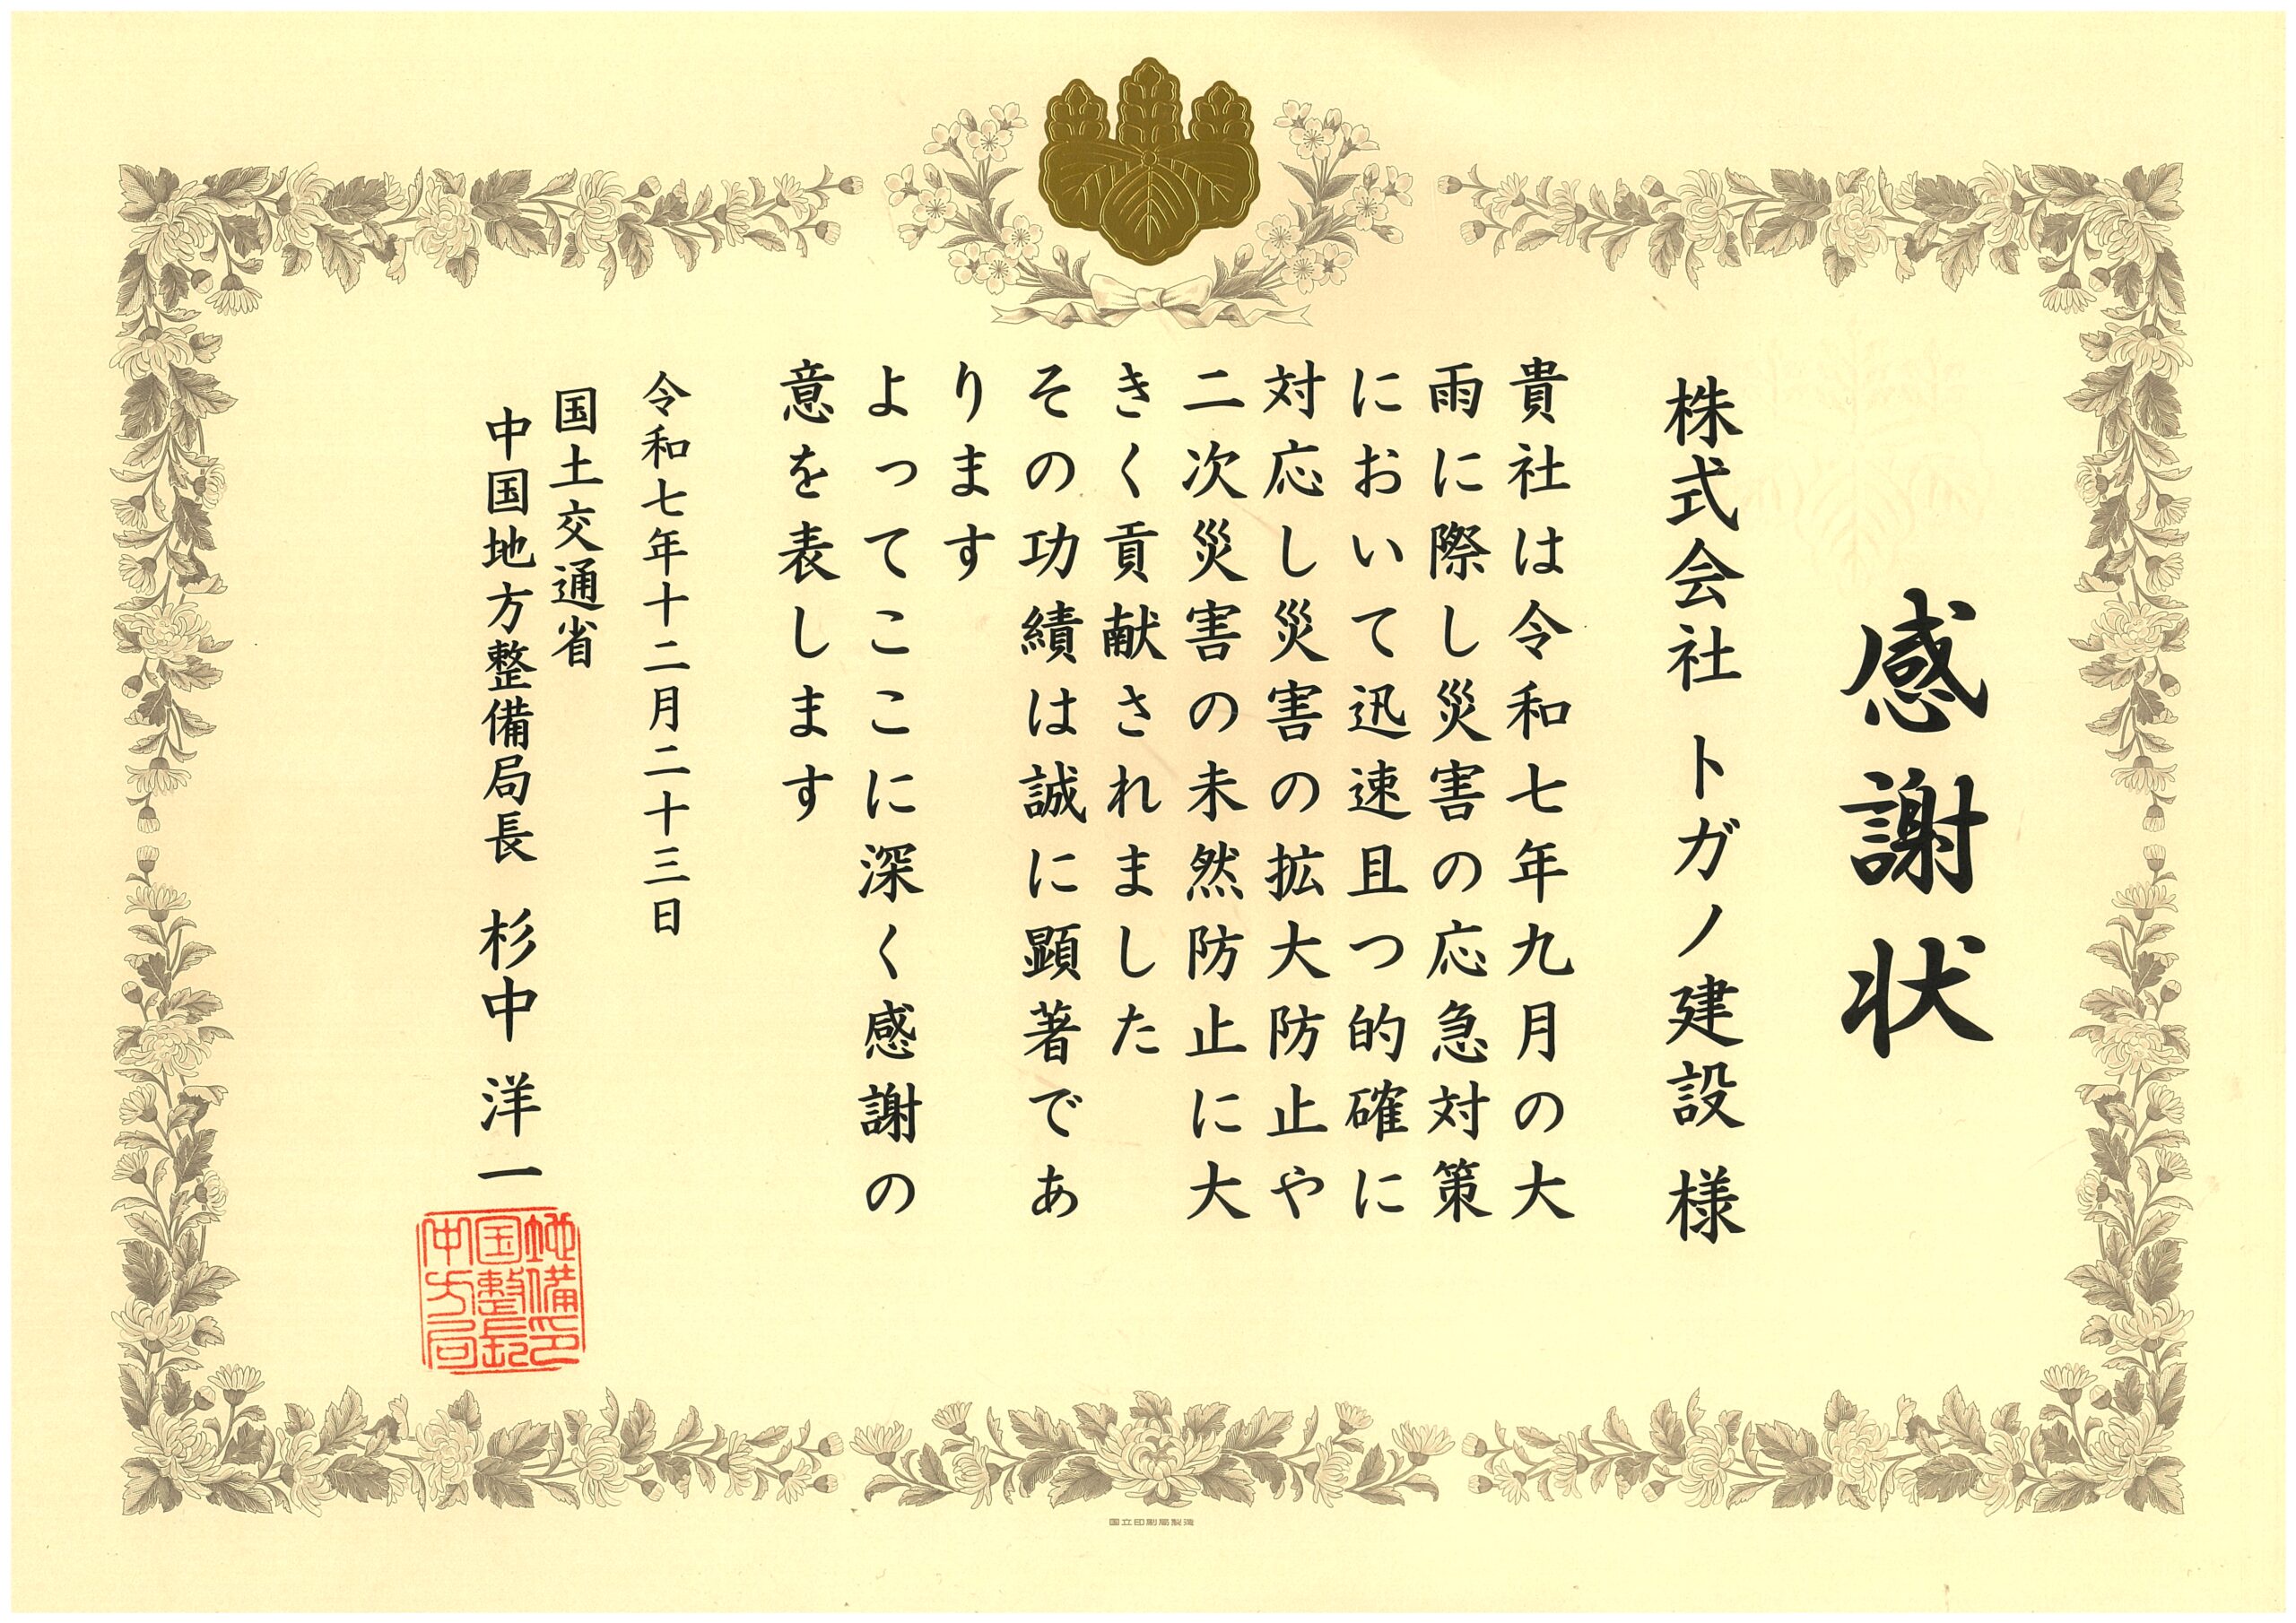 感謝状
株式会社 トガノ建設 様
貴社は令和七年九月の大
雨に際し災害の応急対策
において迅速且つ的確に
対応し災害の拡大防止や
二次災害の未然防止に大
きく貢献されました
その功績は誠に顕著であ
ります
よってここに深く感謝の
意を表します
令和七年十二月二十三日
国土交通省
中国地方整備局長 杉中 洋一
中国地
方整備
局長印
国立印刷局製造